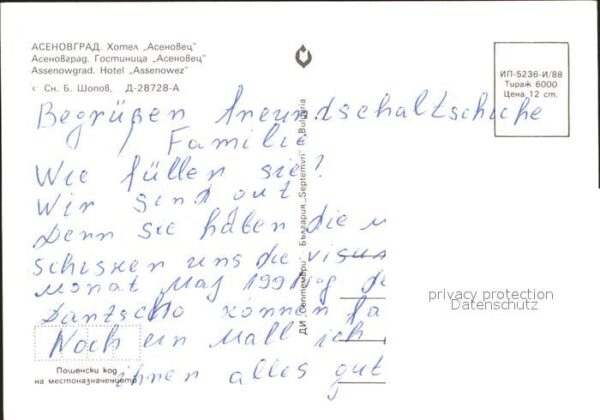 АСЕНОВГРАД. Хотел „Асеновец"
Асеновград. Гостиница „Асеновец"
Assenowgrad. Hotel „Assenowez"
с Сн. Б. Шопов, Д-28728-А
ИП-5236-И/88
Тираж 6000
Цена 12 ст.
Begrüßen Freundschaltschuche
Familie
Wie füllen sie?
Wir sind out
Denn sie haben die
schisken uns die visum
monat Maj 1991
Dantscho können fa
Noch ein Mall ich
ihnen alles gut
ДИ „Септември" България „Septemvri" Bulgaria
Пощенски код
на местоназначението
privacy protection
Datenschutz